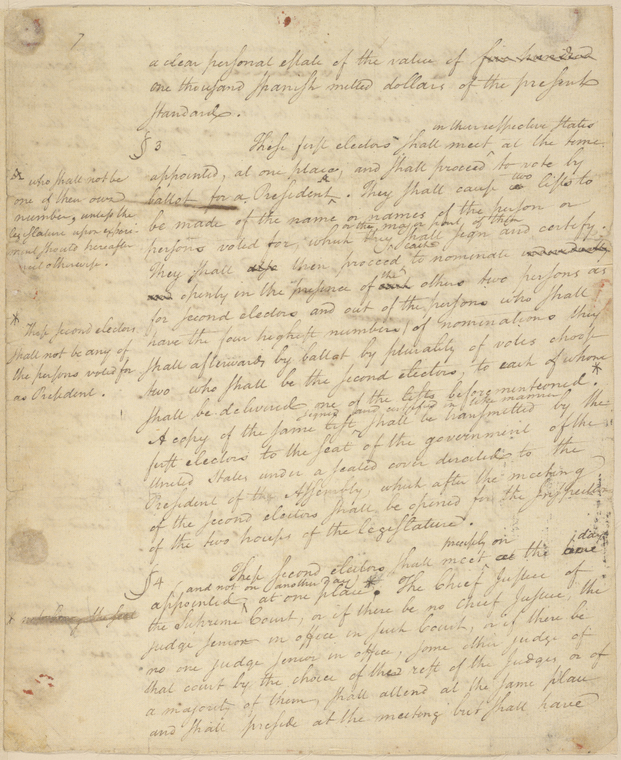 7
a clear personal estate of the value of five hundred
one thousand Spanish milled dollars of the present
standard.
in their respective States
§ 3 These first electors shall meet at the time
appointed, at one place, and shall proceed to vote by
ballot for a President. They shall cause two lists to
be made of the name or names of the person or
or the major part of them
persons voted for, which they shall sign and certify.
They shall then proceed each to nominate
openly in the presence of the others two persons as
for second electors and out of the persons who shall
have the four highest numbers of nominations they
shall afterwards by ballot by plurality of votes choose
two who shall be the second electors, to each of whom
shall be delivered one of the lists before mentioned. *
signed and certified in like manner
A copy of the same list shall be transmitted by the
first electors to the seat of the government of the
United States under a sealed cover directed to the
President of the Assembly, which after the meeting
of the second electors shall be opened for the inspection
of the two houses of the legislature.
precisely on day
§ 4 These second electors shall meet the
and not on another day
appointed at one place. The Chief Justice of
the Supreme Court, or if there be no Chief Justice, the
judge senior in office in such Court, or if there be
no one judge senior in office, some other judge of
that court by the choice of the rest of the judges or of
a majority of them, shall attend at the same place
and shall preside at the meeting but shall have
who shall not be
one of their own
number, unless the
legislature upon experi-
ment should hereafter
direct otherwise.
* These second electors
shall not be any of
the persons voted for
as President.